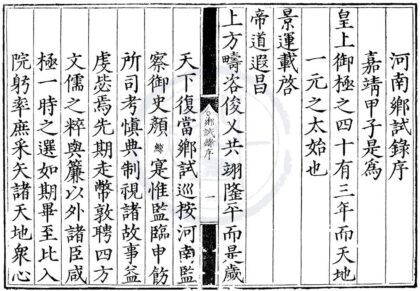 河南鄉試錄序
嘉靖甲子是爲
一元之太始也
皇上御極之四十有三年而天地
景運載啓
帝道遐昌
上方疇咨俊乂共翊隆平而是歲
鄉試錄序 一
天下復當鄉試巡按河南監
察御史顏鯨寔惟監臨申飭
所司考慎典制視諸故事益
虔毖焉先期走幣敦聘四方
文儒之粹與簾以外諸臣咸
極一時之選如期畢至比入
院躬率庶采矢諸天地衆心